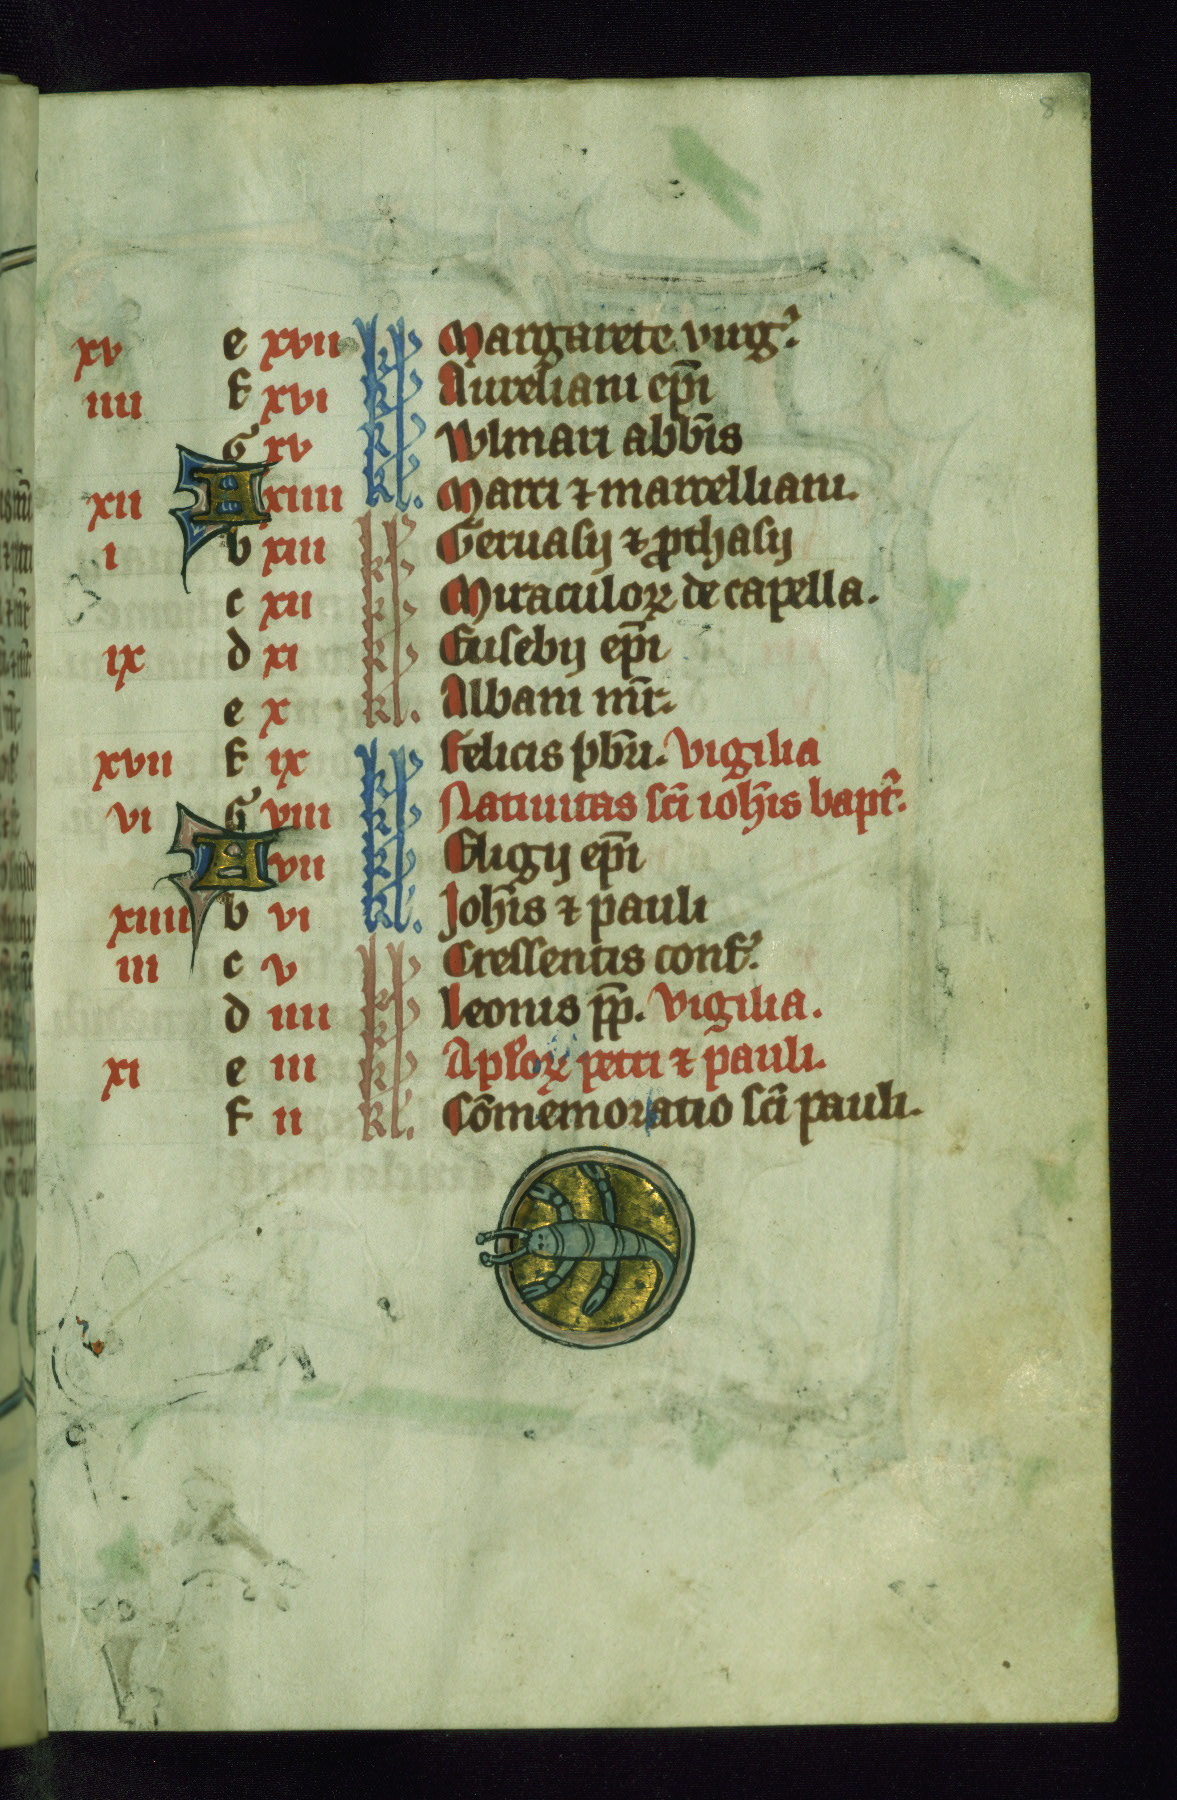 8
xv e xvii kl Margarete virg᾽.
iiii f xvi kl Aureliani ep̄i
G xv kl Wlmari abb̄is
xii A xiiii kl. Marci ⁊ marcelliani.
i b xiii kl Geruasij ⁊ ꝓthasij
c xii kl Miraculoꝝ de capella.
ix d xi kl Eusebij ep̄i
e x kl. Albani mr̄.
xvii f ix kl Felicis pb̄ri. vigilia
vi G viii kl Natiuitas sc̄i ioh̄is bapt᾽.
A vii kl Eligij ep̄i
xiiii b vi kl. Joh̄is ⁊ pauli
iii c v kl Cressentis conf᾽.
d iiii kl Leonis p̄p̄. Vigilia.
xi e iii kl Apl̄oꝝ petri ⁊ pauli.
f ii kl. Cōmemoratio sc̄i pauli.